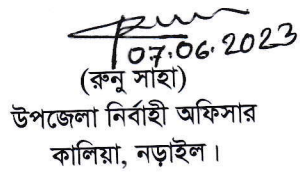 07.06.2023
(রুনু সাহা)
উপজেলা নির্বাহী অফিসার
কালিয়া, নড়াইল।